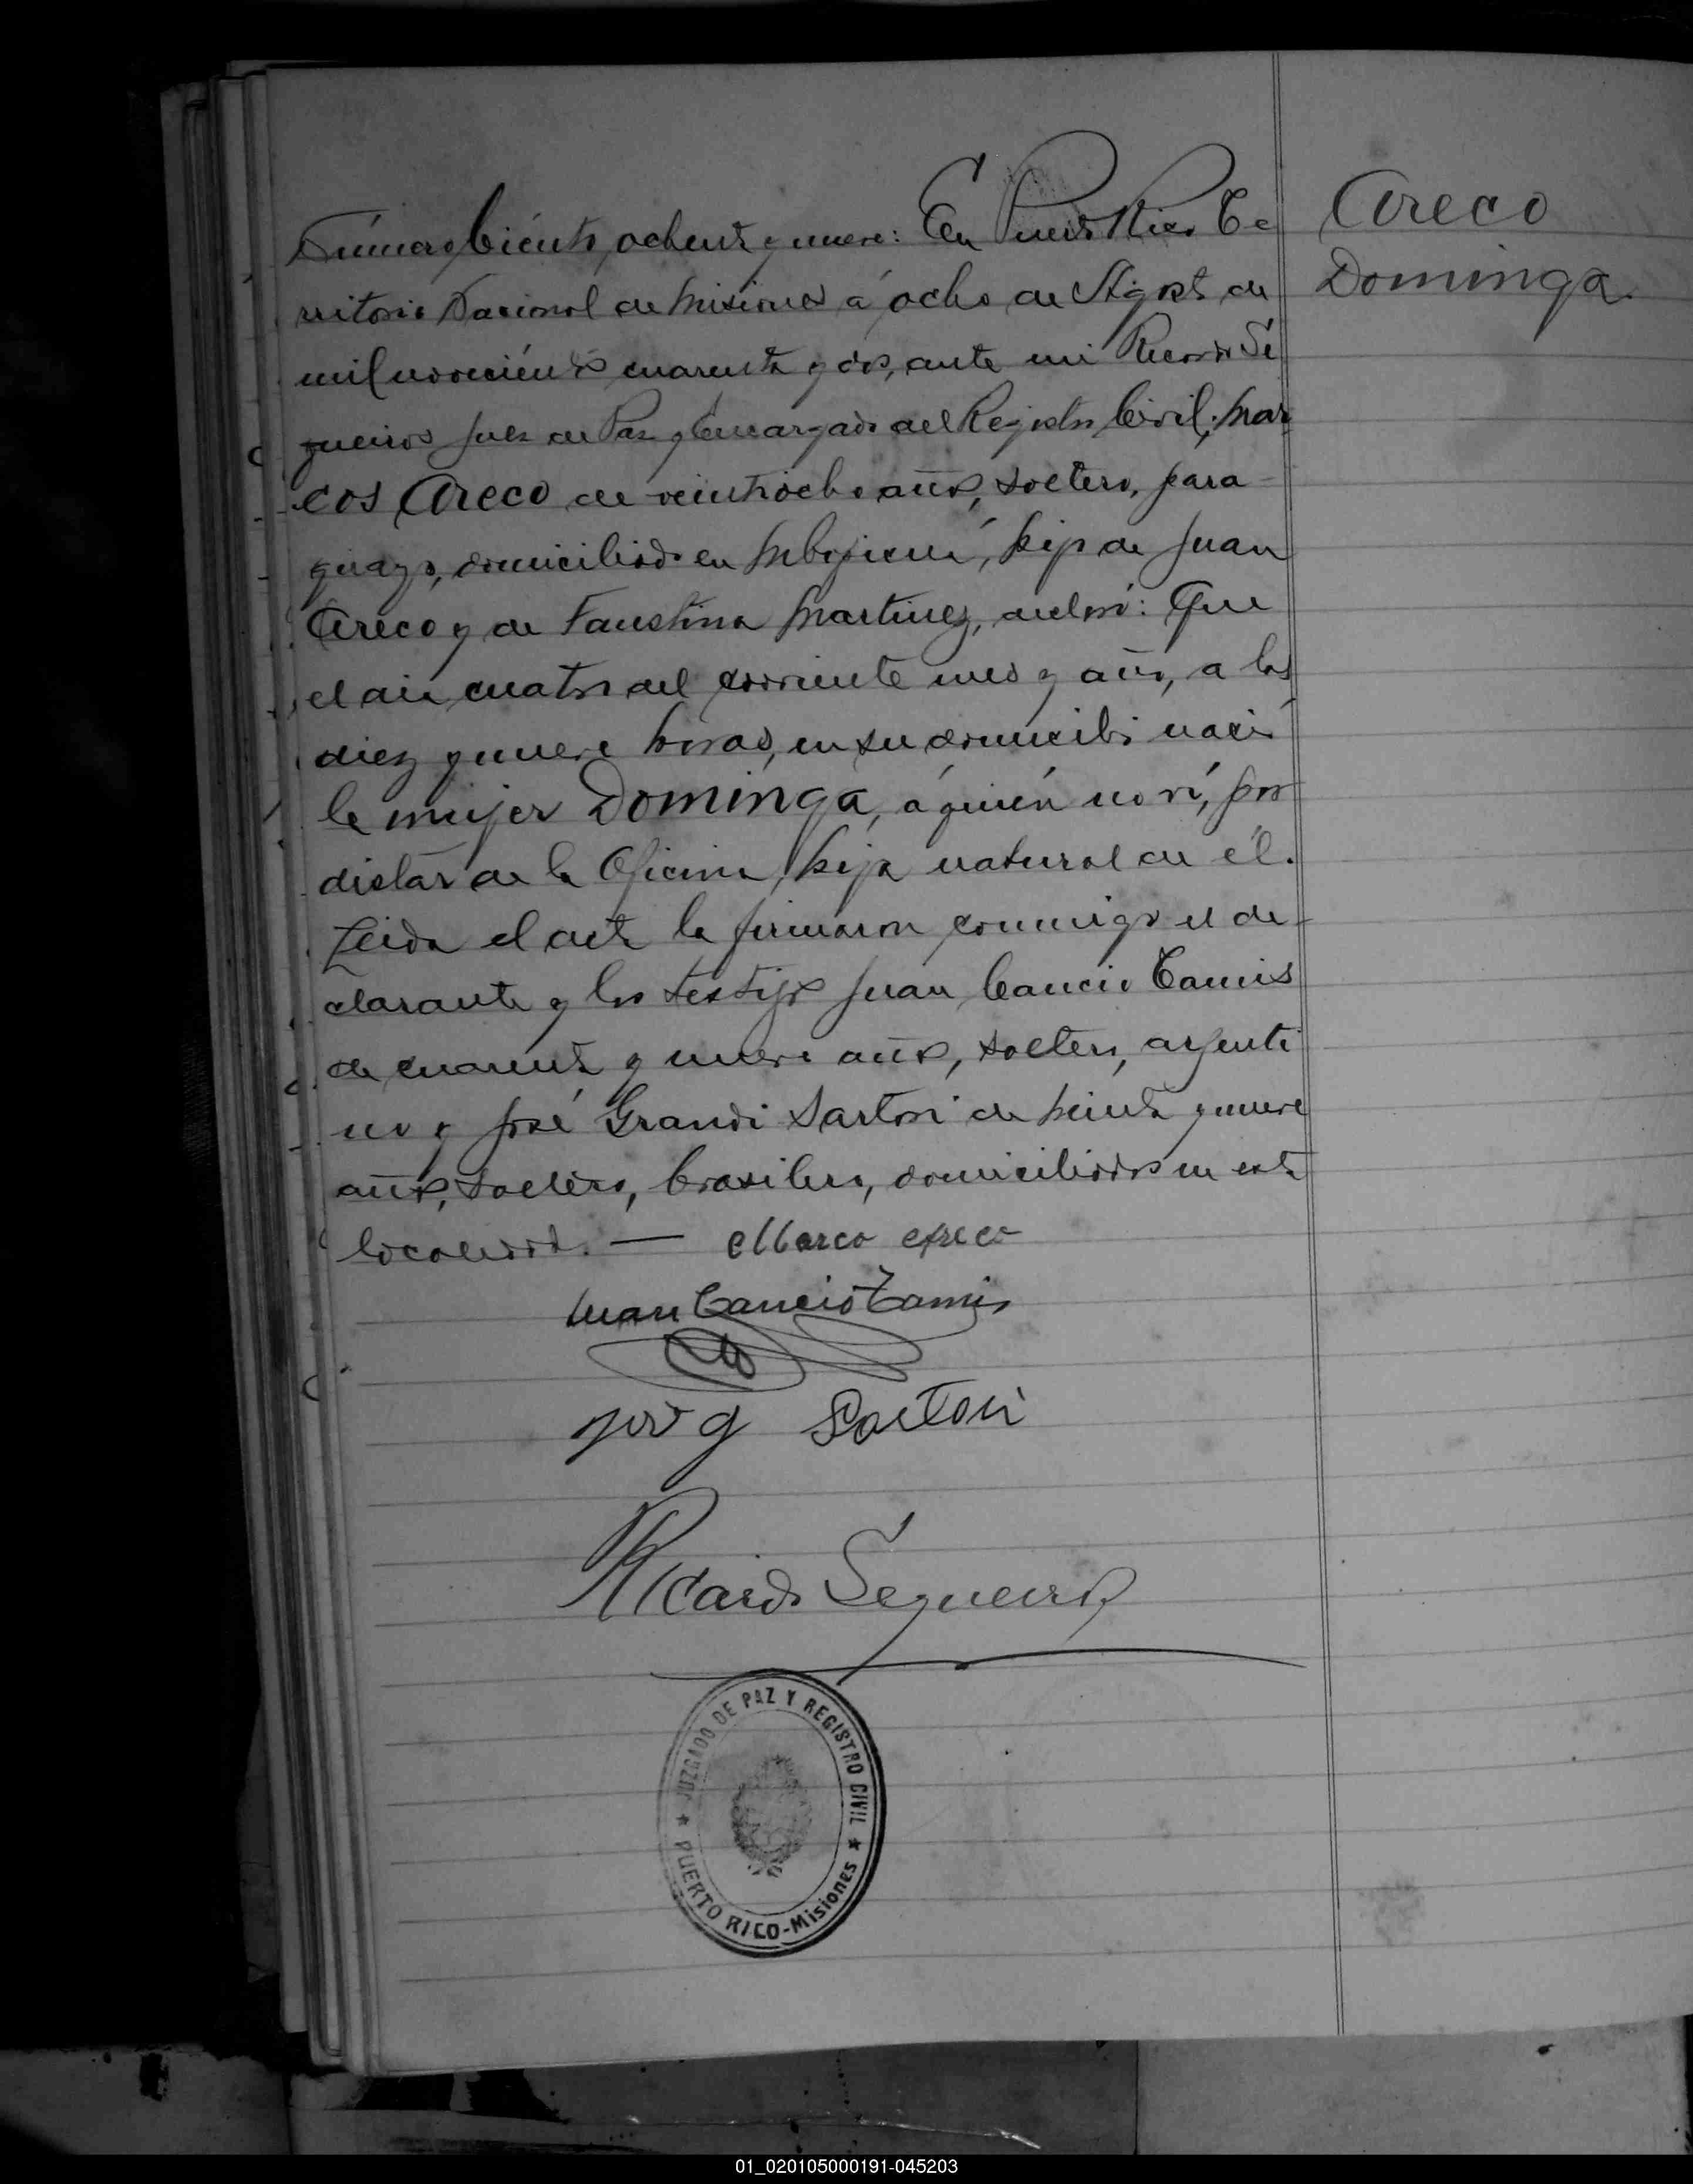 Número Ciento ochenta y nueve: En Puerto Rico Te
rritorio Nacional de Misiones á ocho de Agosto de
mil novecientos cuarenta y dos, ante mi Ricardo Se
queiros Juez de Paz y Encargado del Registro Civil; Mar
cos Areco de veintiocho años, soltero, para-
guayo, domiciliado en Mbopicuá, hijo de Juan
Areco y de Faustina Martinez, declaró: Que
el día cuatro del corriente mes y año, a las
diez y nueve horas, en su domicilio nació
la mujer Dominga, á quién no ví, por
distar de la Oficina, hija natural de él.
Leida el acta la firmaron conmigo el de-
clarante y los testigos Juan Cancio Tamis
de cuarenta y nueve años, soltero, argenti
no y José Grandi Sartori de treinta y nueve
años, soltero, brasilero, domiciliados en esta
localidad. — Marco Areco
Juan Cancio Tamis
José G Sartori
Ricardo Sequeiros
JUZGADO DE PAZ Y REGISTRO CIVIL
★ PUERTO RICO-Misiones ★
Areco
Dominga.
01_020105000191-045203